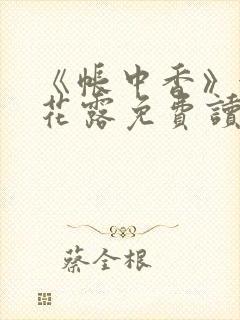 《帳中香》
花露免費讀
蔡全根